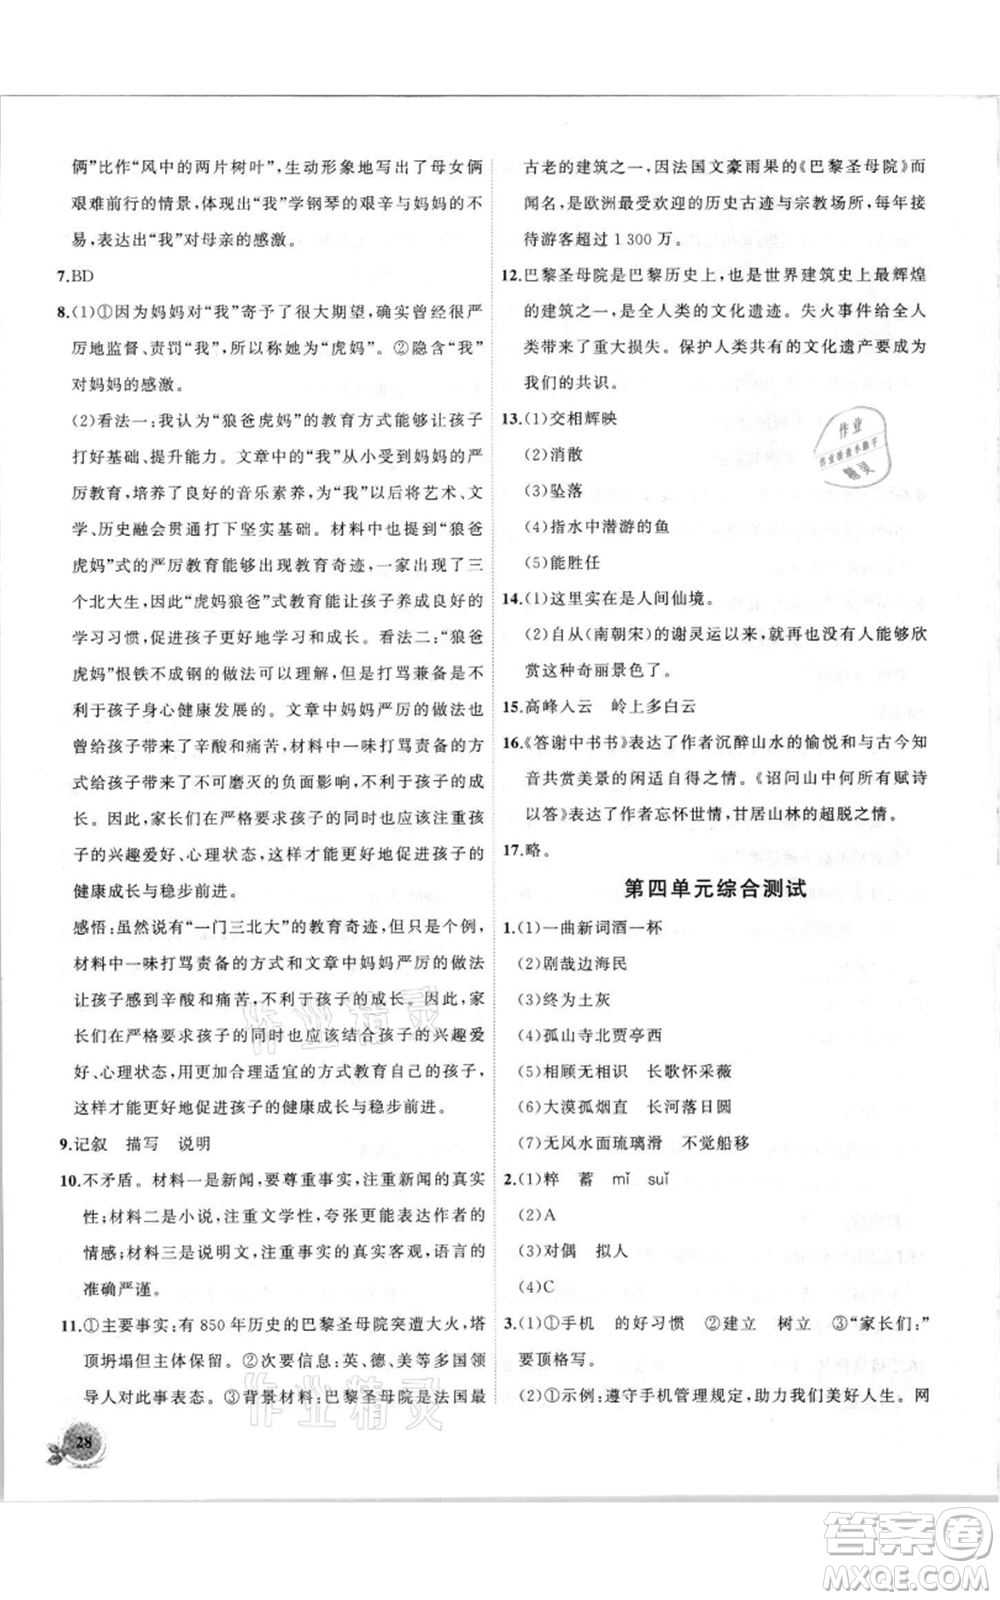 俩”比作“风中的两片树叶”,生动形象地写出了母女俩
艰难前行的情景,体现出“我”学钢琴的艰辛与妈妈的不
易,表达出“我”对母亲的感激。
7.BD
8.(1)①因为妈妈对“我”寄予了很大期望,确实曾经很严
厉地监督、责罚“我”,所以称她为“虎妈”。②隐含“我”
对妈妈的感激。
(2)看法一:我认为“狼爸虎妈”的教育方式能够让孩子
打好基础、提升能力。文章中的“我”从小受到妈妈的严
厉教育,培养了良好的音乐素养,为“我”以后将艺术、文
学、历史融会贯通打下坚实基础。材料中也提到“狼爸
虎妈”式的严厉教育能够出现教育奇迹,一家出现了三
个北大生,因此“虎妈狼爸”式教育能让孩子养成良好的
学习习惯,促进孩子更好地学习和成长。看法二:“狼爸
虎妈”恨铁不成钢的做法可以理解,但是打骂兼备是不
利于孩子身心健康发展的。文章中妈妈严厉的做法也
曾给孩子带来了辛酸和痛苦,材料中一味打骂责备的方
式更会给孩子带来不可磨灭的负面影响,不利于孩子的
成长。因此,家长们在严格要求孩子的同时也应该注重孩子
的兴趣爱好、心理状态,这样才能更好地促进孩子的
健康成长与稳步前进。
感悟:虽然说有“一门三北大”的教育奇迹,但只是个例,
材料中一味打骂责备的方式和文章中妈妈严厉的做法
让孩子感到辛酸和痛苦,不利于孩子的成长。因此,家
长们在严格要求孩子的同时也应该结合孩子的兴趣爱
好、心理状态,用更加合理适宜的方式教育自己的孩子,
这样才能更好地促进孩子的健康成长与稳步前进。
9.记叙 描写 说明
10.不矛盾。材料一是新闻,要尊重事实,注重新闻的真实
性;材料二是小说,注重文学性,夸张更能表达作者的
情感;材料三是说明文,注重事实的真实客观,语言的
准确严谨。
11.①主要事实:有850年历史的巴黎圣母院突遭大火,塔
顶坍塌但主体保留。②次要信息:英、德、美等多国领
导人对此事表态。③背景材料:巴黎圣母院是法国最
28
古老的建筑之一,因法国文豪雨果的《巴黎圣母院》而
闻名,是欧洲最受欢迎的历史古迹与宗教场所,每年接
待游客超过1300万。
12.巴黎圣母院是巴黎历史上,也是世界建筑史上最辉煌
的建筑之一,是全人类的文化遗迹。失火事件给全人
类带来了重大损失。保护人类共有的文化遗产要成为
我们的共识。
13.(1)交相辉映
(2)消散
(3)坠落
(4)指水中潜游的鱼
(5)能胜任
14.(1)这里实在是人间仙境。
(2)自从(南朝宋)的谢灵运以来,就再也没有人能够欣
赏这种奇丽景色了。
15.高峰入云 岭上多白云
16.《答谢中书书》表达了作者沉醉山水的愉悦和与古今知
音共赏美景的闲适自得之情。《诏问山中何所有赋诗
以答》表达了作者忘怀世情,甘居山林的超脱之情。
17.略。
第四单元综合测试
1.(1)一曲新词酒一杯
(2)剧哉边海民
(3)终为土灰
(4)孤山寺北贾亭西
(5)相顾无相识 长歌怀采薇
(6)大漠孤烟直 长河落日圆
(7)无风水面琉璃滑 不觉船移
2.(1)粹 蓄 mǐ suǐ
(2)A
(3)对偶 拟人
(4)C
3.(1)①手机 的好习惯 ②建立 树立 ③“家长们:”
要顶格写。
(2)①示例:遵守手机管理规定,助力我们美好人生。网
作业精灵
作业精灵
作业
作业检查小助手
精灵
答案圈
MXQE.COM